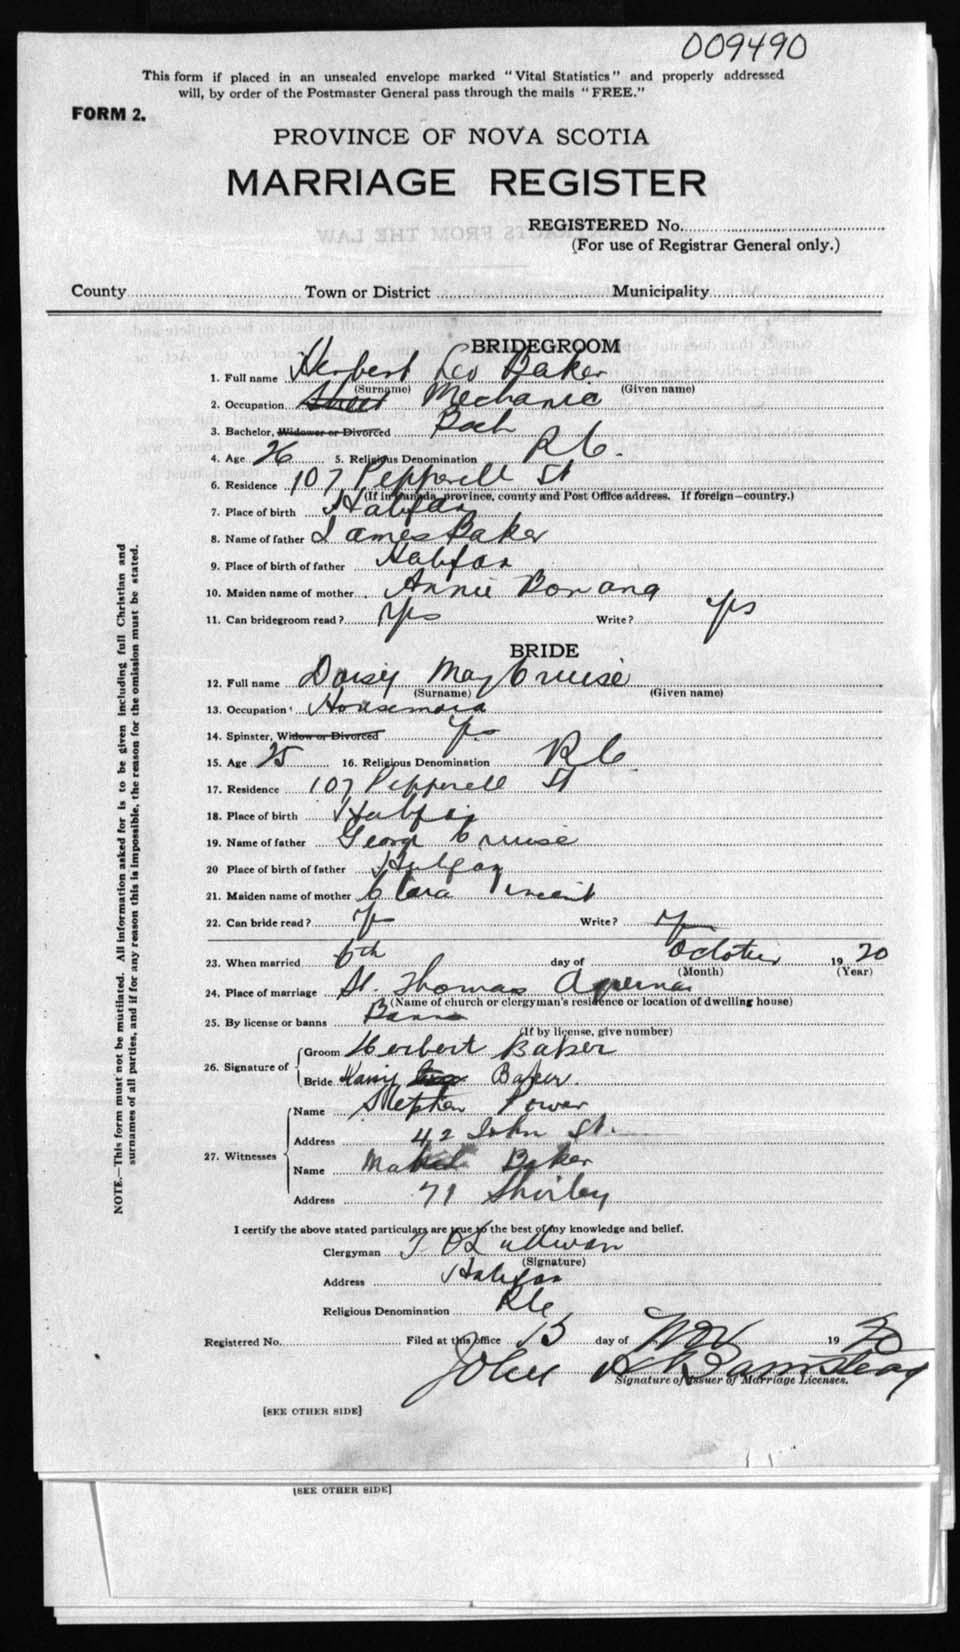 009490
This form if placed in an unsealed envelope marked "Vital Statistics" and properly addressed
will, by order of the Postmaster General pass through the mails "FREE."
FORM 2.
PROVINCE OF NOVA SCOTIA
MARRIAGE REGISTER
REGISTERED No.
(For use of Registrar General only.)
County Town or District Municipality
BRIDEGROOM
1. Full name Herbert Leo Baker
(Surname) (Given name)
2. Occupation Mechanic
3. Bachelor, Widower or Divorced Bach
4. Age 26 5. Religious Denomination R C.
6. Residence 107 Pepperell St
(If in Canada, province, county and Post Office address. If foreign—country.)
7. Place of birth Halifax
8. Name of father James Baker
9. Place of birth of father Halifax
10. Maiden name of mother Annie
11. Can bridegroom read? Yes Write? yes
BRIDE
12. Full name Daisy May Cruise
(Surname) (Given name)
13. Occupation Housemaid
14. Spinster, Widow or Divorced Yes
15. Age 25 16. Religious Denomination R C
17. Residence 107 Pepperell St
18. Place of birth Halifax
19. Name of father George Cruise
20 Place of birth of father Halifax
21. Maiden name of mother Clara Vincent
22. Can bride read? Write?
23. When married 6th day of October 1920
(Month) (Year)
24. Place of marriage St. Thomas
(Name of church or clergyman's residence or location of dwelling house)
25. By license or banns Banns
(If by license, give number)
26. Signature of Groom Herbert Baker
Bride Baker.
27. Witnesses Name Stephen Power
Address 42 John St.
Name Baker
Address 71 Shirley
I certify the above stated particulars are true to the best of my knowledge and belief.
Clergyman T O'Sullivan
(Signature)
Address Halifax
Religious Denomination RC
Registered No. Filed at this office 15 day of Nov 1920
John
Signature of Issuer of Marriage Licenses.
[SEE OTHER SIDE]
[SEE OTHER SIDE]
NOTE.—This form must not be mutilated. All information asked for is to be given including full Christian and
surnames of all parties, and if for any reason this is impossible, the reason for the omission must be stated.